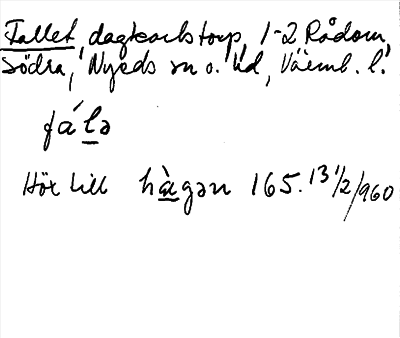 Tallet, dagkarlstorp, 1-2 Rådom,
Södra, Nyeds sn o. hd, Värml. l.
fál̲ə
Hör till hà̲gən 165. 13 1/2/960